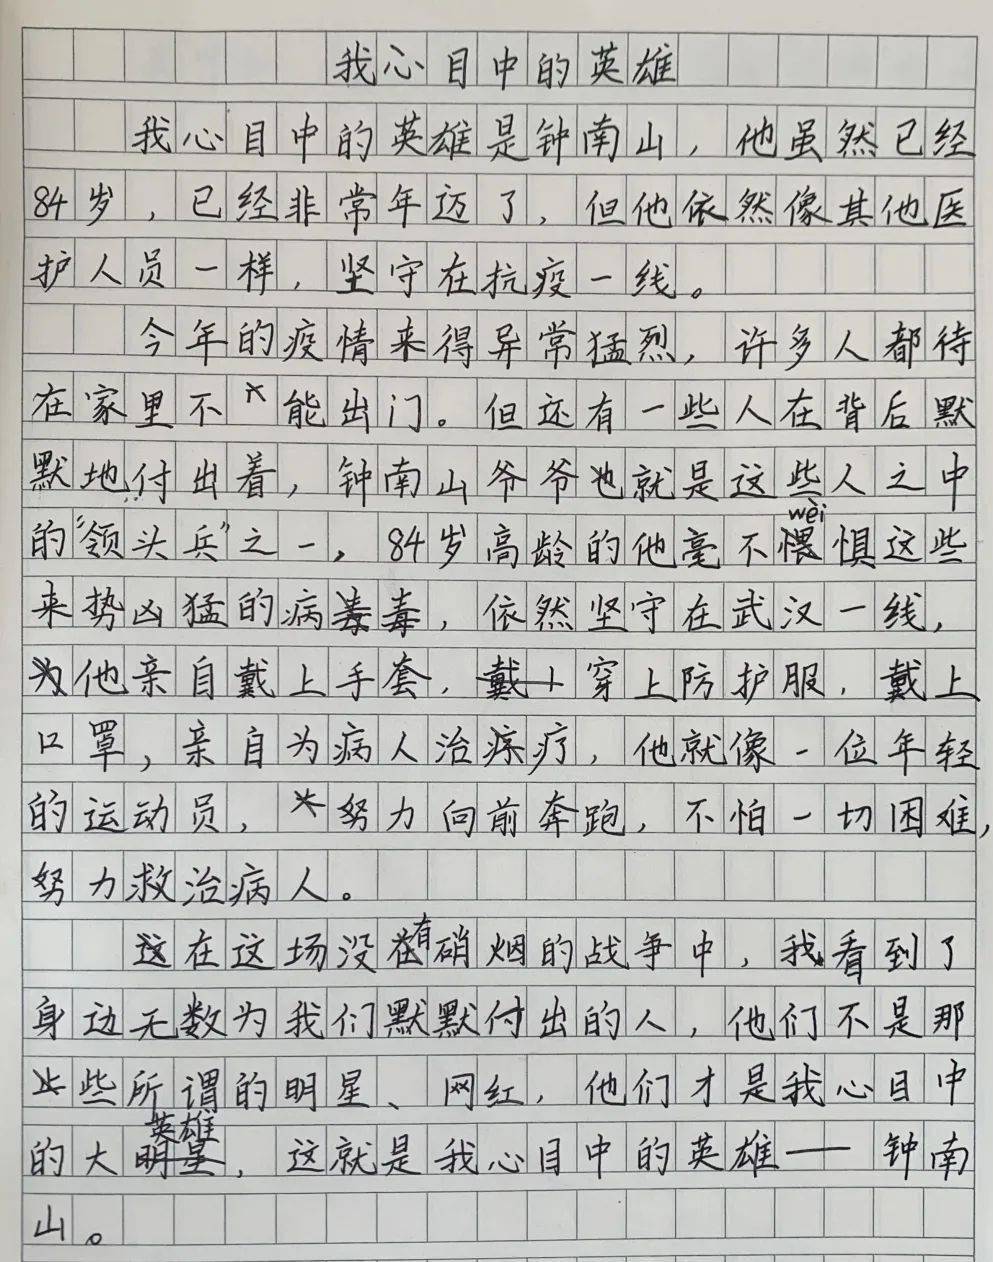 我心目中的英雄
我心目中的英雄是钟南山，他虽然已经
84岁，已经非常年迈了，但他依然像其他医
护人员一样，坚守在抗疫一线。
今年的疫情来得异常猛烈，许多人都待
在家里不能出门。但还有一些人在背后默
默地付出着，钟南山爷爷也就是这些人之中
wèi
的“领头兵”之一，84岁高龄的他毫不惧这些
来势凶猛的病毒，依然坚守在武汉一线，
他亲自戴上手套，穿上防护服，戴上
口罩，亲自为病人治疗，他就像一位年轻
的运动员，努力向前奔跑，不怕一切困难，
努力救治病人。
在这场没有硝烟的战争中，我看到了
身边无数为我们默默付出的人，他们不是那
些所谓的明星、网红，他们才是我心目中
的大英雄，这就是我心目中的英雄——钟南
山。